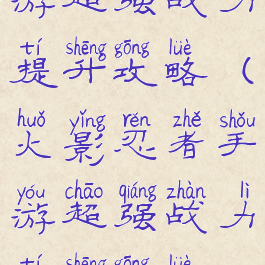 游超强战力
tí shēng gōng lüè
提升攻略（
huǒ yǐng rěn zhě shǒu
火影忍者手
yóu chāo qiáng zhàn lì
游超强战力
tí shēng gōng lüè